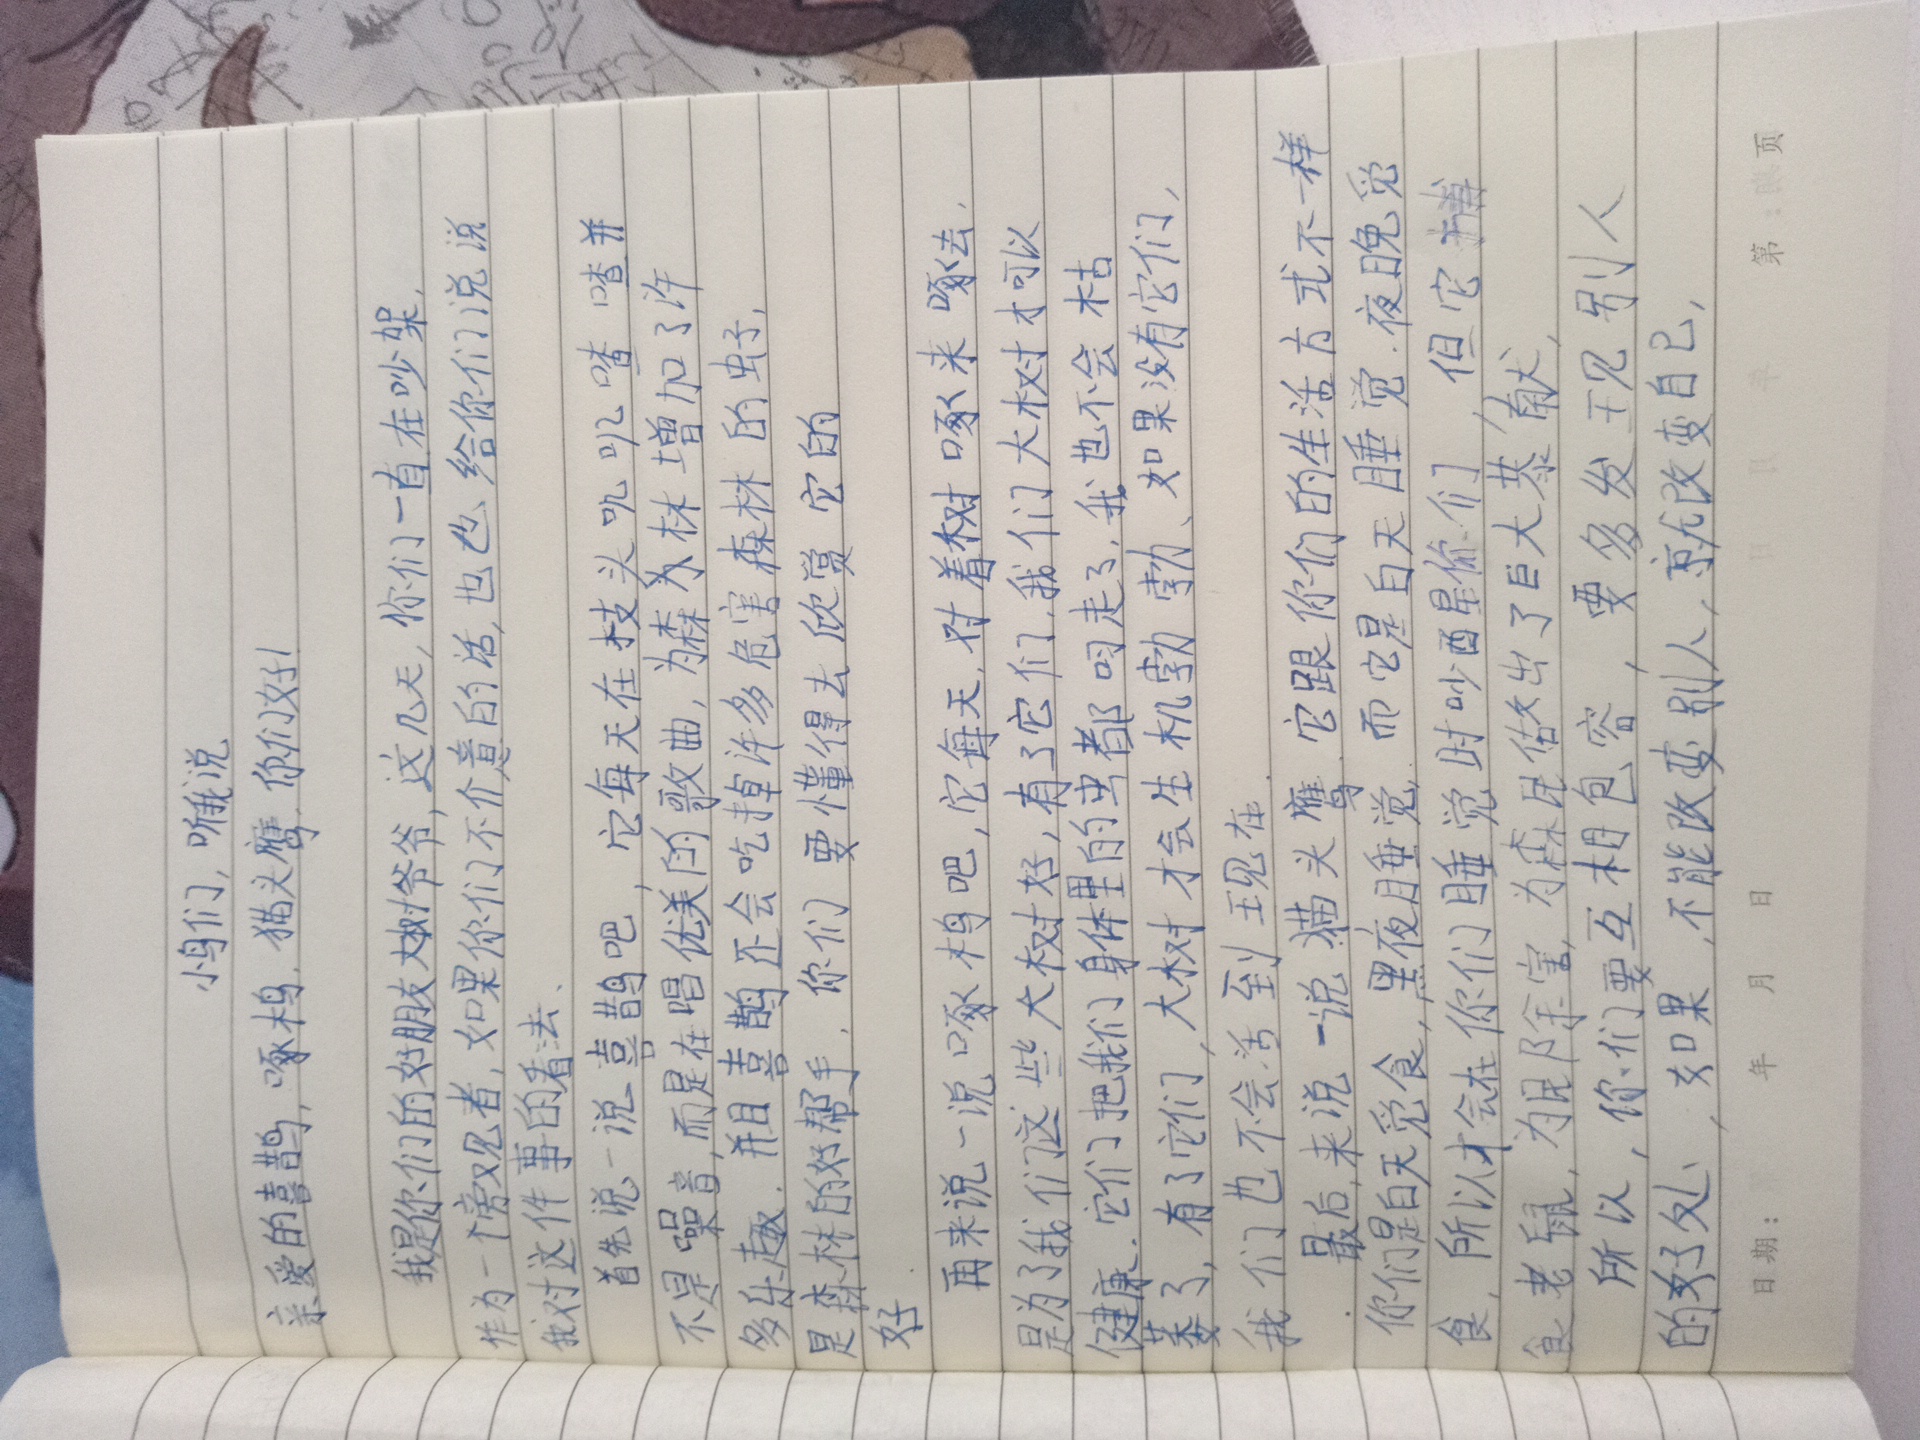 小鸟们，听我说
亲爱的喜鹊，啄木鸟，猫头鹰，你们好！
我是你们的好朋友大树爷爷，这几天，你们一直在吵架，
作为一个旁观者，如果你们不介意的话，也让给你们说说
我对这件事的看法、
首先说一说喜鹊吧，它每天在枝头叽叽喳喳并
不是噪音，而是在唱优美的歌曲，为森林增加了许
多乐趣．并且喜鹊还会吃掉许多危害森林的虫子，
是森林的好帮手．你们要懂得去欣赏它的
好
再来说一说啄木鸟吧，它每天，对着树啄来啄去，
是为了我们这些大树好，有了它们，我们大树才可以
健康．它们把我们身体里的虫都叼走了，我也不会枯
萎了，有了它们，大树才会生机勃勃、如果没有它们，
我们也不会活到现在．
最后，来说一说猫头鹰．它跟你们的生活方式不一样
你们是白天觅食，黑夜睡觉．而它是白天睡觉．夜晚觅
食，所以才会在你们睡觉时吵醒你们 但它捕
食老鼠，为民除害，为森民做出了巨大恭献，
所以，你们要互相包容，要多发现别人
的好处、如果，不能改变别人，就改变自己，
日期： 年 月 日
第： 页